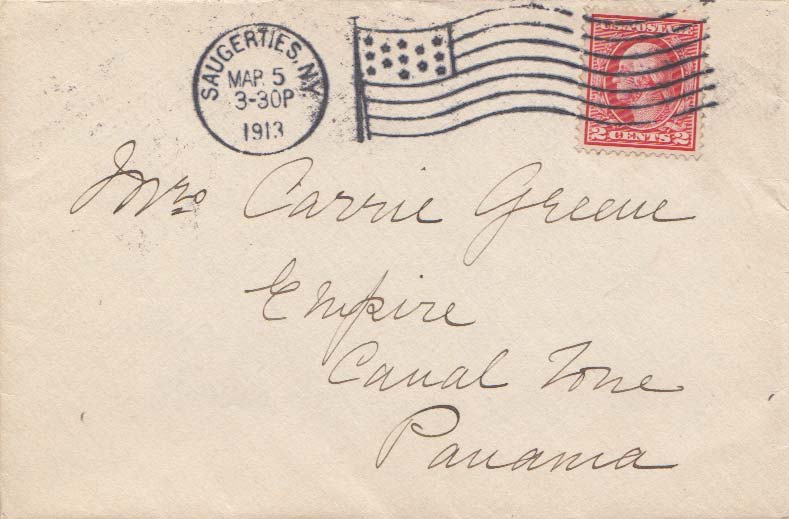 SAUGERTIES, N.Y.
MAR 5
3-30P
1913
U.S. POSTAGE
2 CENTS 2
Mrs Carrie Greene
Empire
Canal Zone
Panama